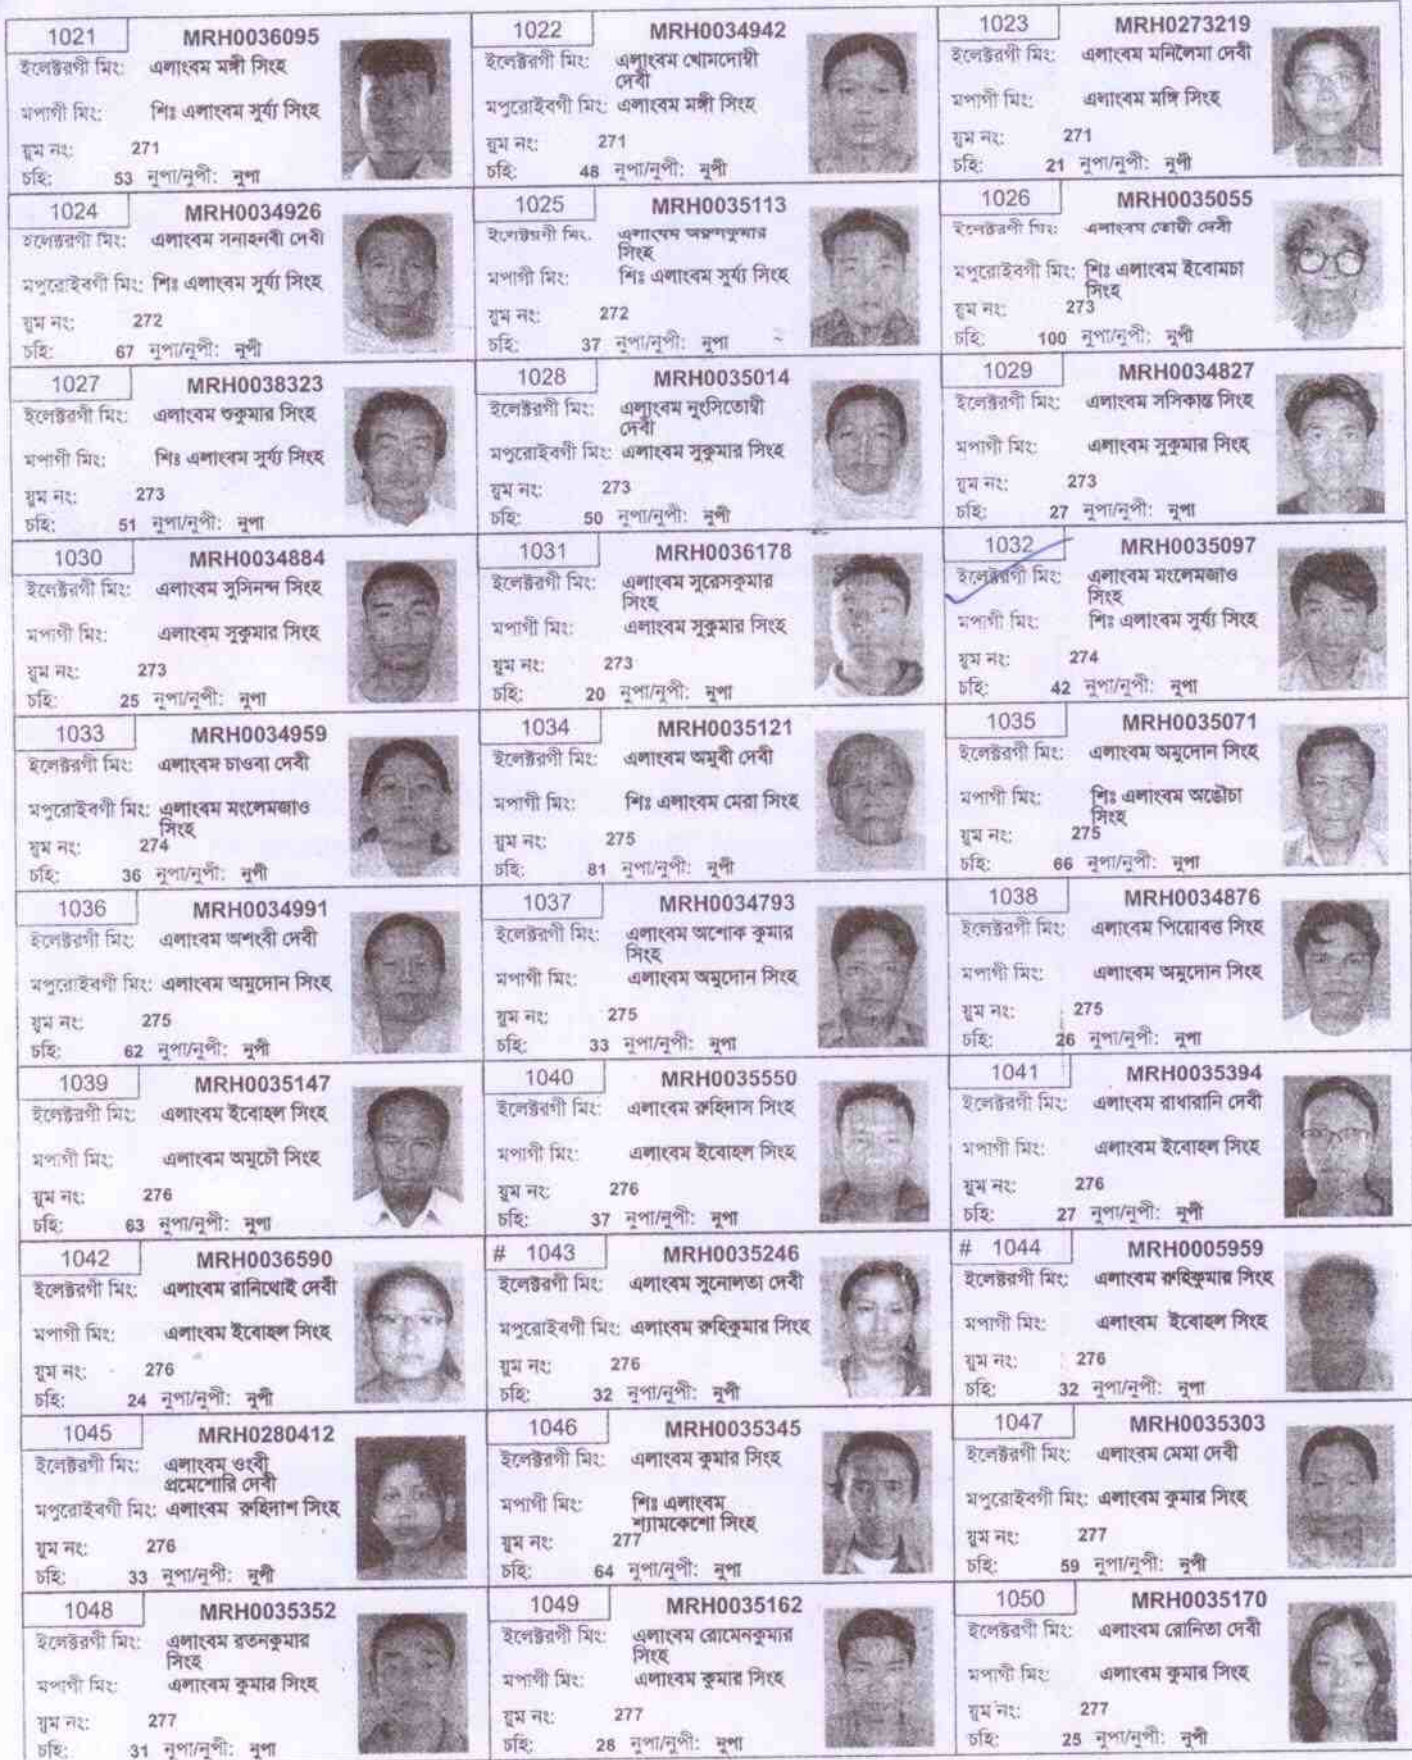 1021 MRH0036095
ইলেক্টরগী মিং: এলাংবম মঙ্গী সিংহ
মপাগী মিং: শিঃ এলাংবম সুর্য্য সিংহ
য়ুম নং: 271
চহি: 53 নুপা/নুপী: নুপা
1022 MRH0034942
ইলেক্টরগী মিং: এলাংবম খোমদোম্বী
দেবী
মপুরোইবগী মিং: এলাংবম মঙ্গী সিংহ
য়ুম নং: 271
চহি: 48 নুপা/নুপী: নুপী
1023 MRH0273219
ইলেক্টরগী মিং: এলাংবম মনিলৈমা দেবী
মপাগী মিং: এলাংবম মঙ্গি সিংহ
য়ুম নং: 271
চহি: 21 নুপা/নুপী: নুপী
1024 MRH0034926
ইলেক্টরগী মিং: এলাংবম সনাহনবী দেবী
মপুরোইবগী মিং: শিঃ এলাংবম সুর্য্য সিংহ
য়ুম নং: 272
চহি: 67 নুপা/নুপী: নুপী
1025 MRH0035113
ইলেক্টরগী মিং: এলাংবম অরুনকুমার
সিংহ
মপাগী মিং: শিঃ এলাংবম সুর্য্য সিংহ
য়ুম নং: 272
চহি: 37 নুপা/নুপী: নুপা
1026 MRH0035055
ইলেক্টরগী মিং: এলাংবম তোম্বী দেবী
মপুরোইবগী মিং: শিঃ এলাংবম ইবোমচা
সিংহ
য়ুম নং: 273
চহি: 100 নুপা/নুপী: নুপী
1027 MRH0038323
ইলেক্টরগী মিং: এলাংবম শুকুমার সিংহ
মপাগী মিং: শিঃ এলাংবম সুর্য্য সিংহ
য়ুম নং: 273
চহি: 51 নুপা/নুপী: নুপা
1028 MRH0035014
ইলেক্টরগী মিং: এলাংবম নুংসিতোম্বী
দেবী
মপুরোইবগী মিং: এলাংবম সুকুমার সিংহ
য়ুম নং: 273
চহি: 50 নুপা/নুপী: নুপী
1029 MRH0034827
ইলেক্টরগী মিং: এলাংবম সসিকান্ত সিংহ
মপাগী মিং: এলাংবম সুকুমার সিংহ
য়ুম নং: 273
চহি: 27 নুপা/নুপী: নুপা
1030 MRH0034884
ইলেক্টরগী মিং: এলাংবম সুসিনন্দ সিংহ
মপাগী মিং: এলাংবম সুকুমার সিংহ
য়ুম নং: 273
চহি: 25 নুপা/নুপী: নুপা
1031 MRH0036178
ইলেক্টরগী মিং: এলাংবম সুরেসকুমার
সিংহ
মপাগী মিং: এলাংবম সুকুমার সিংহ
য়ুম নং: 273
চহি: 20 নুপা/নুপী: নুপা
1032 MRH0035097
ইলেক্টরগী মিং: এলাংবম মংলেমজাও
সিংহ
মপাগী মিং: শিঃ এলাংবম সুর্য্য সিংহ
য়ুম নং: 274
চহি: 42 নুপা/নুপী: নুপা
1033 MRH0034959
ইলেক্টরগী মিং: এলাংবম চাওবা দেবী
মপুরোইবগী মিং: এলাংবম মংলেমজাও
সিংহ
য়ুম নং: 274
চহি: 36 নুপা/নুপী: নুপী
1034 MRH0035121
ইলেক্টরগী মিং: এলাংবম অমুবী দেবী
মপাগী মিং: শিঃ এলাংবম মেরা সিংহ
য়ুম নং: 275
চহি: 81 নুপা/নুপী: নুপী
1035 MRH0035071
ইলেক্টরগী মিং: এলাংবম অমুদোন সিংহ
মপাগী মিং: শিঃ এলাংবম অঙৌচা
সিংহ
য়ুম নং: 275
চহি: 66 নুপা/নুপী: নুপা
1036 MRH0034991
ইলেক্টরগী মিং: এলাংবম অশংবী দেবী
মপুরোইবগী মিং: এলাংবম অমুদোন সিংহ
য়ুম নং: 275
চহি: 62 নুপা/নুপী: নুপী
1037 MRH0034793
ইলেক্টরগী মিং: এলাংবম অশোক কুমার
সিংহ
মপাগী মিং: এলাংবম অমুদোন সিংহ
য়ুম নং: 275
চহি: 33 নুপা/নুপী: নুপা
1038 MRH0034876
ইলেক্টরগী মিং: এলাংবম পিয়োবত্ত সিংহ
মপাগী মিং: এলাংবম অমুদোন সিংহ
য়ুম নং: 275
চহি: 26 নুপা/নুপী: নুপা
1039 MRH0035147
ইলেক্টরগী মিং: এলাংবম ইবোহল সিংহ
মপাগী মিং: এলাংবম অমুচৌ সিংহ
য়ুম নং: 276
চহি: 63 নুপা/নুপী: নুপা
1040 MRH0035550
ইলেক্টরগী মিং: এলাংবম রুহিদাস সিংহ
মপাগী মিং: এলাংবম ইবোহল সিংহ
য়ুম নং: 276
চহি: 37 নুপা/নুপী: নুপা
1041 MRH0035394
ইলেক্টরগী মিং: এলাংবম রাধারানি দেবী
মপাগী মিং: এলাংবম ইবোহল সিংহ
য়ুম নং: 276
চহি: 27 নুপা/নুপী: নুপী
1042 MRH0036590
ইলেক্টরগী মিং: এলাংবম রানিথোই দেবী
মপাগী মিং: এলাংবম ইবোহল সিংহ
য়ুম নং: 276
চহি: 24 নুপা/নুপী: নুপী
# 1043 MRH0035246
ইলেক্টরগী মিং: এলাংবম সুনোলতা দেবী
মপুরোইবগী মিং: এলাংবম রুহিকুমার সিংহ
য়ুম নং: 276
চহি: 32 নুপা/নুপী: নুপী
# 1044 MRH0005959
ইলেক্টরগী মিং: এলাংবম রুহিকুমার সিংহ
মপাগী মিং: এলাংবম ইবোহল সিংহ
য়ুম নং: 276
চহি: 32 নুপা/নুপী: নুপা
1045 MRH0280412
ইলেক্টরগী মিং: এলাংবম ওংবী
প্রমেশোরি দেবী
মপুরোইবগী মিং: এলাংবম রুহিদাশ সিংহ
য়ুম নং: 276
চহি: 33 নুপা/নুপী: নুপী
1046 MRH0035345
ইলেক্টরগী মিং: এলাংবম কুমার সিংহ
মপাগী মিং: শিঃ এলাংবম
শ্যামকেশো সিংহ
য়ুম নং: 277
চহি: 64 নুপা/নুপী: নুপা
1047 MRH0035303
ইলেক্টরগী মিং: এলাংবম মেমা দেবী
মপুরোইবগী মিং: এলাংবম কুমার সিংহ
য়ুম নং: 277
চহি: 59 নুপা/নুপী: নুপী
1048 MRH0035352
ইলেক্টরগী মিং: এলাংবম রতনকুমার
সিংহ
মপাগী মিং: এলাংবম কুমার সিংহ
য়ুম নং: 277
চহি: 31 নুপা/নুপী: নুপা
1049 MRH0035162
ইলেক্টরগী মিং: এলাংবম রোমেনকুমার
সিংহ
মপাগী মিং: এলাংবম কুমার সিংহ
য়ুম নং: 277
চহি: 28 নুপা/নুপী: নুপা
1050 MRH0035170
ইলেক্টরগী মিং: এলাংবম রোনিতা দেবী
মপাগী মিং: এলাংবম কুমার সিংহ
য়ুম নং: 277
চহি: 25 নুপা/নুপী: নুপী